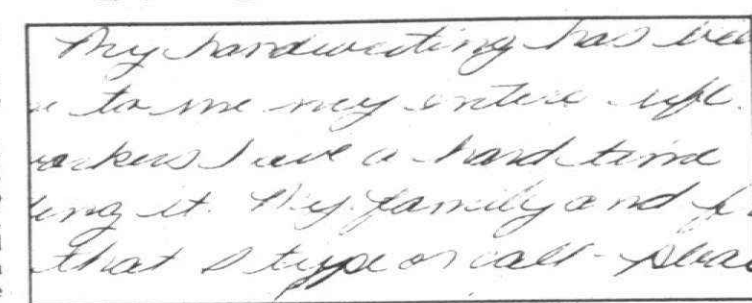 My handwriting has bee
to me my entire life.
workers have a hard time
ding it. My family and f
that I type or call - pleas